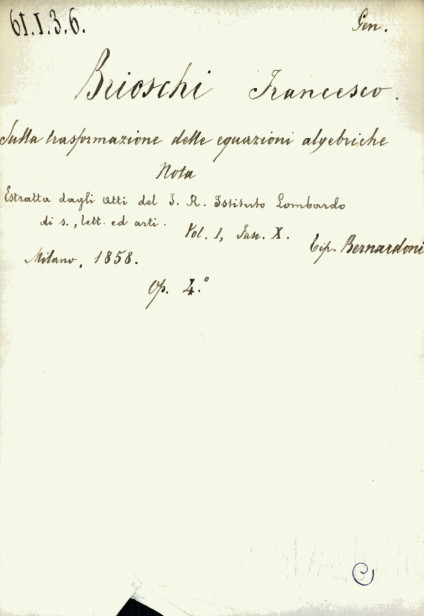 61.1.3.6. Gen.
Brioschi Francesco.
Sulla trasformazione delle equazioni algebriche
Nota
Estratta dagli Atti del I. R. Istituto Lombardo
di s., lett. ed arti. Vol. I, Fasc. X. Tip. Bernardoni
Milano, 1858.
Op. 4.°
C